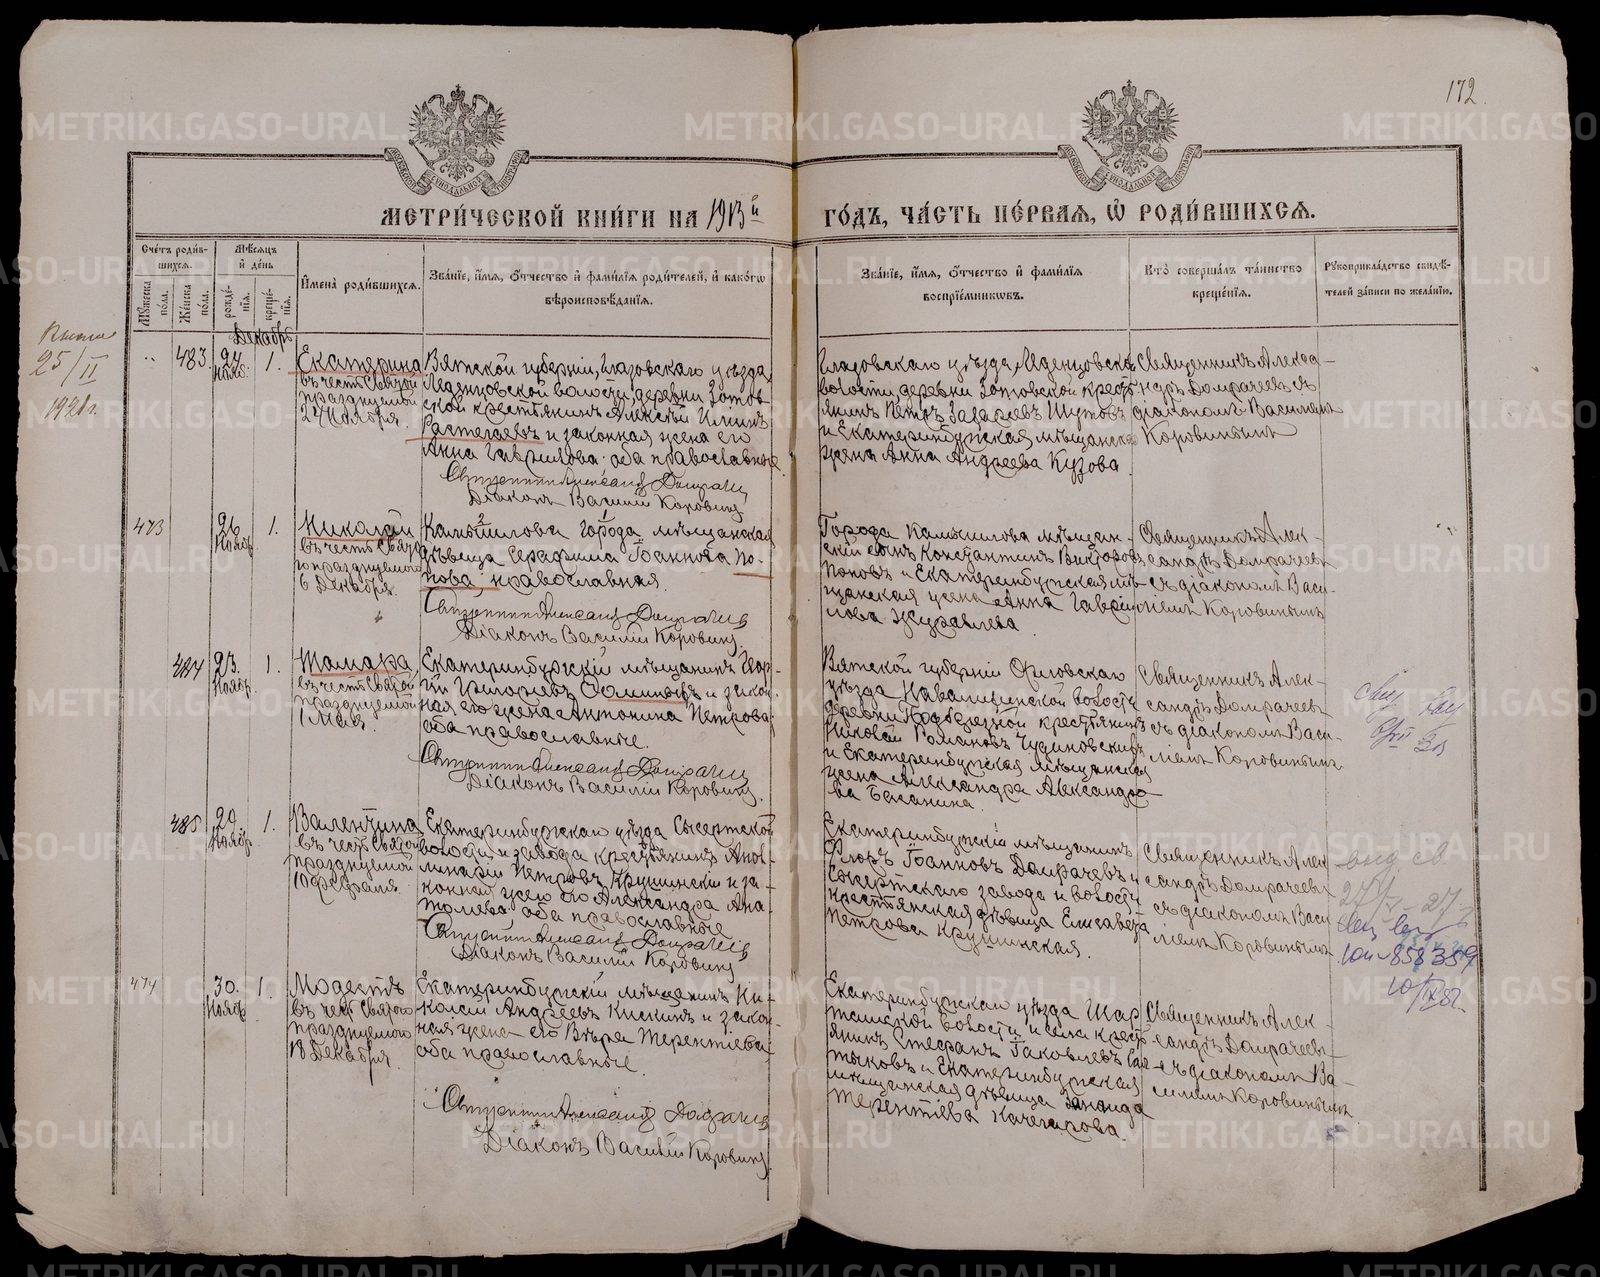 172.
МЕТРИ́ЧЕСКОЙ КНИ́ГИ НА 1913й
ГО́ДЪ, ЧА́СТЬ ПЕ́РВАЯ, Ѡ РОДИ́ВШИХСЯ.
Сче́тъ роди́в-
шихся.
Мꙋ́жеска по́ла.
Же́нска по́ла.
Мѣ́сяцъ
и҆ де́нь
рожде́-
нїя.
креще́-
нїя.
И҆мена̀ роди́вшихся.
Зва́нїе, и҆́мя, ѻ҆́тчество и҆ фами́лїя роди́телей, и҆ како́гѡ
вѣроисповѣ́данїя.
Зва́нїе, и҆́мя, ѻ҆́тчество и҆ фами́лїя
воспрїе́мникѡвъ.
Кто̀ соверша́лъ та́инство
креще́нїя.
Рꙋкоприкла́дство свидѣ́-
телей за́писи по жела́нїю.
Декабрь
25/II
1921г.
483
24
Нояб.
1.
Екатерина
въ честь Святой
празднуемой
24 Ноября.
Вятской губерніи, Глазовскаго уѣзда,
Леденцовской волости, деревни Зотов-
ской крестьянинъ Алексѣй Илiинъ
Растегаевъ и законная жена его
Анна Гаврилова. оба православные
Священникъ Александръ Домрачевъ
Діаконъ Василій Коровинъ
Глазовскаго уѣзда, Леденцовской
волости, деревни Зотовской крест-
янинъ Петръ Шутовъ
и Екатеринбургская мѣщанская
жена Анна Андреева Кузова.
Священникъ Алекса-
ндръ Домрачевъ съ
діакономъ Василіемъ
Коровинымъ
473
26
Нояб.
1.
Николай
въ честь Свято-
го празднуемаго
6 Декабря.
Камышлова города мѣщанская
дѣвица Серафима Іоаннова По-
пова, православная.
Священникъ Александръ Домрачевъ
Діаконъ Василій Коровинъ
Города Камышлова мѣщан-
скій сынъ Константинъ Викторовъ
Поповъ и Екатеринбургская мѣ-
щанская жена Анна Гаври-
лова Журавлева
Священникъ Алек-
сандръ Домрачевъ
съ діакономъ Васи-
ліемъ Коровинымъ
484
23.
Нояб.
1.
Тамара
въ честь Святой
празднуемой
1 Мая.
Екатеринбургскій мѣщанинъ Геор-
гій Григорьевъ и закон-
ная его жена Антонина Петрова
оба православные.
Священникъ Александръ Домрачевъ
Діаконъ Василій Коровинъ.
Вятской губерніи Орловскаго
уѣзда волости
деревни Подберезной крестьянинъ
Николай Романовъ Чудиновскихъ
и Екатеринбургская мѣщанская
жена Александра Александро-
ва Басанина.
Священникъ Алек-
сандръ Домрачевъ
съ діакономъ Васи-
ліемъ Коровинымъ
485
29.
Нояб.
1.
Валентина
въ честь Святой
празднуемой
10 Февраля.
Екатеринбургскаго уѣзда Сысертской
волости и завода крестьянинъ Апол-
линарій Петровъ Крушинскій и за-
конная жена его Александра Ана-
толіева. оба православные
Священникъ Александръ Домрачевъ
Діаконъ Василій Коровинъ
Екатеринбургскій мѣщанинъ
Флоръ Іоанновъ Домрачевъ и
Сысертскаго завода и волости
крестьянская дѣвица Елисавета
Петрова Крушинская.
Священникъ Алек-
сандръ Домрачевъ
съ діакономъ Васи-
ліемъ Коровинымъ
858389
474
30.
Нояб.
1.
Модестъ
въ честь Святого
празднуемаго
18 Декабря.
Екатеринбургскій мѣщанинъ Ни-
колай Андреевъ Кискинъ и закон-
ная жена его Вѣра Терентіева
оба православные.
Священникъ Александръ Домрачевъ
Діаконъ Василій Коровинъ
Екатеринбургскаго уѣзда Шар-
ташской волости и села крест-
янинъ Стефанъ Іаковлевъ
и Екатеринбургская
мѣщанская дѣвица Зинаида
Терентіева Качегарова.
Священникъ Алек-
сандръ Домрачевъ
съ діакономъ Ва-
силіемъ Коровинымъ
METRIKI.GASO-URAL.RU